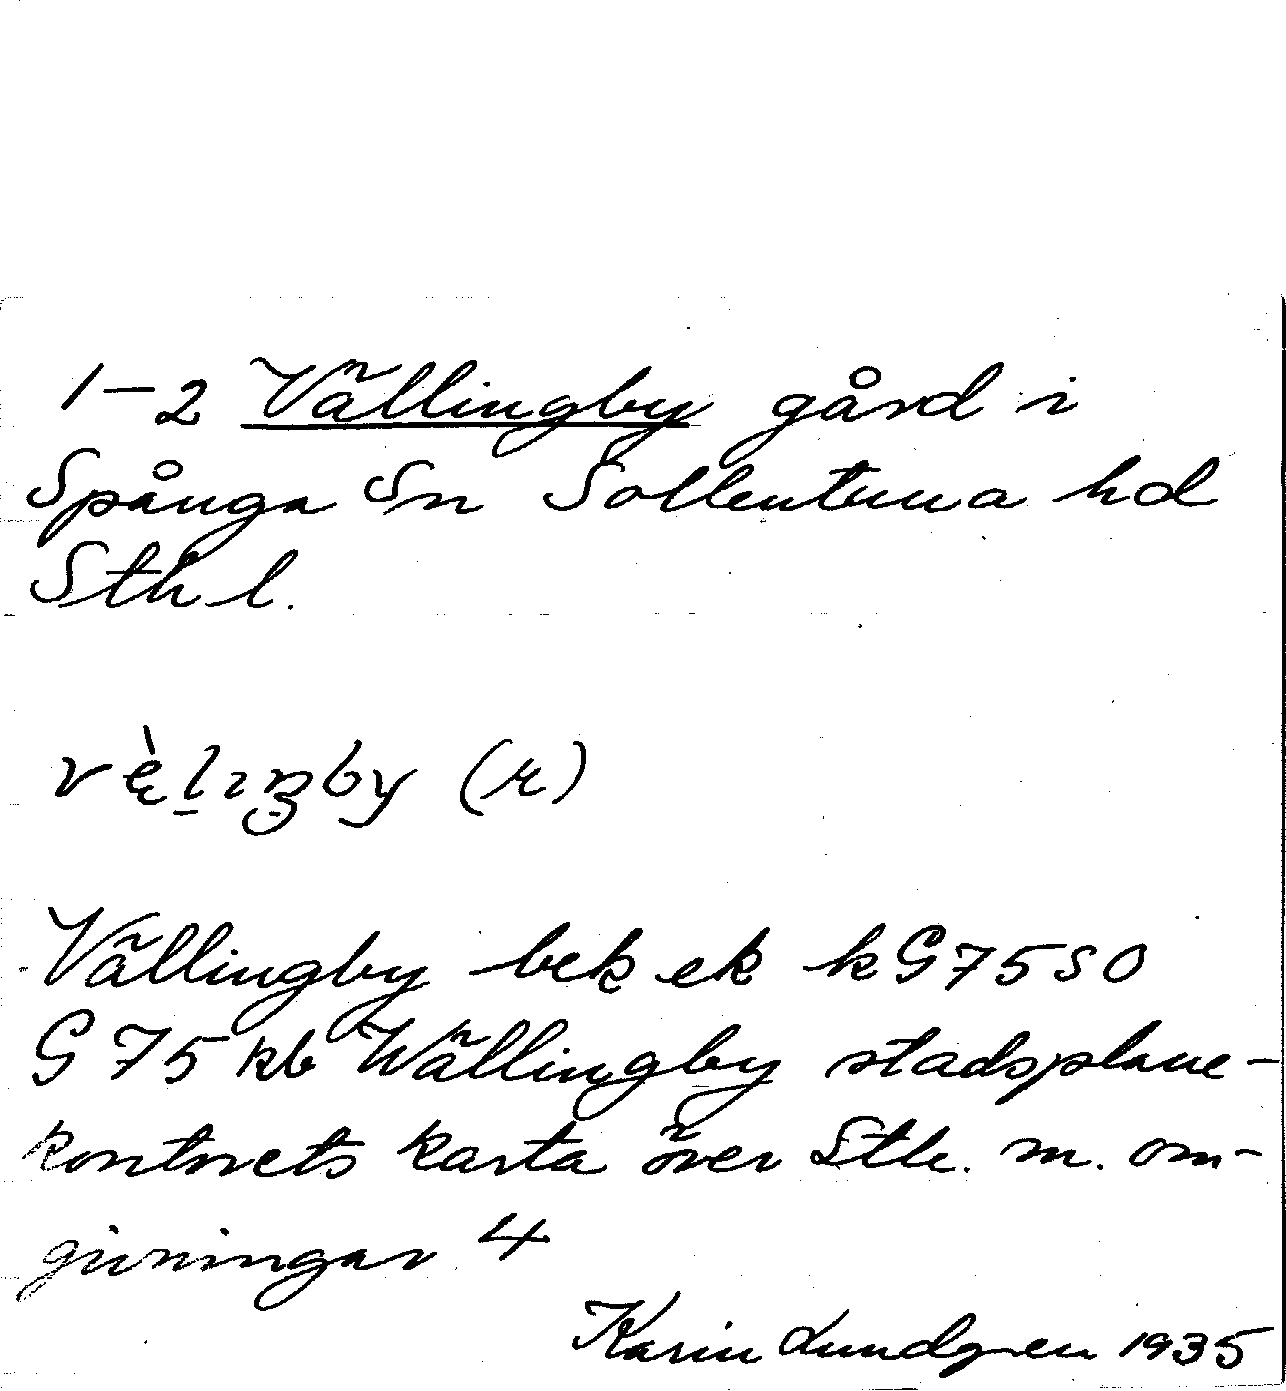 1–2 Vällingby gård i
Spånga Sn Sollentuna hd
Sth l.
(r)
Vällingby bek ek k G75SO
G75 kb Wällingby stadsplane-
kontorets karta över Sth. m. om-
givningar 4
Karin Lundgren 1935